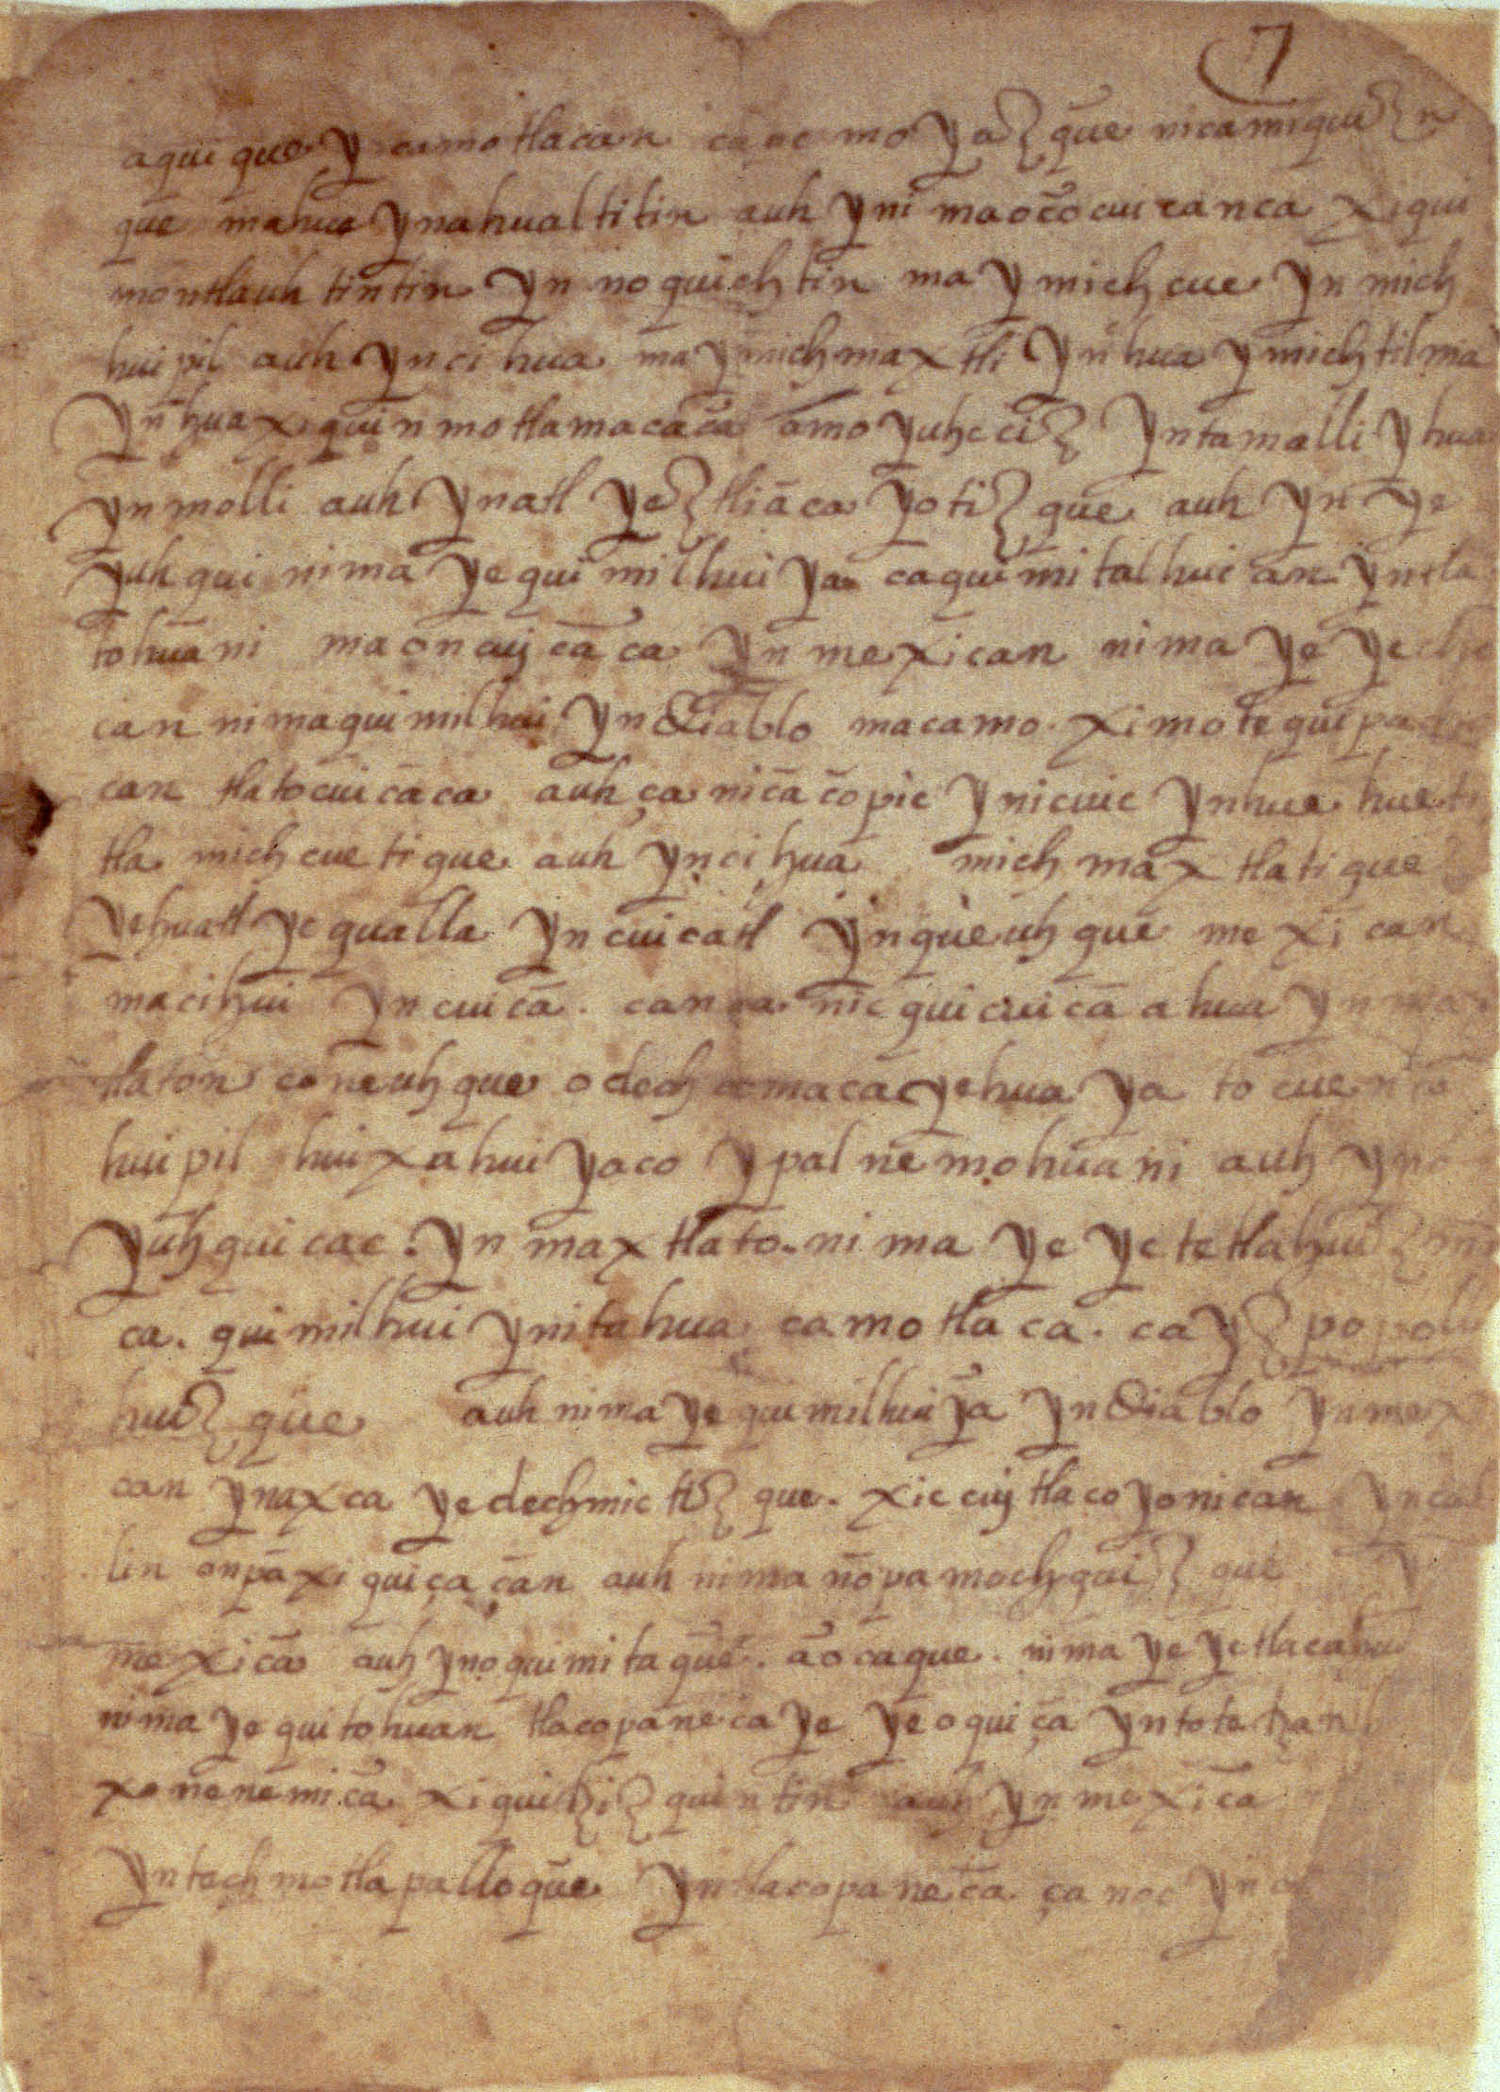 7
aqui que y camotlacan ca ac mo yaz q̄ue nicamiquiz n
que mahua ynahualtitin auh yni maoc̄ocuicanca xiqui
montlauhtintin yn noquichtin ma ymichcue yn mich
huipil auh ynci hua ma ymichmaxtli yn hua ymichtilma
yn hua xiquinmotlamacaca āmo yuhcciz yntamalli yhua
ynmolli auh ynatl yeztli āca yotiz que auh yn ye
yuhqui nima ye quimilhui ya caquimitalhuican yntla
tohuani maoncuj cāca yn mexican nima ye ye
can nimaquimilhui yn diablo macamo ximotequipa
can tlatocuicāca auh ça nicā c̄opic ynicuic ynhuehue
tla michcuetique auh yncihua michmaxtlatique
yehuatl ye qualla yn cuicatl ynquēuhque mexican
macihui yn cuicā . can nic quicuicā a huu yn
tlaton coneuhque odech macā yehua ya tocue
huipil huixahui yaco ypalnemohuani auh yno
yuhquicac . yn maxtlato . nima ye ye tetlahuiz
ca . quimilhui ynitahua camotlaca . ca yz popol
huiz que auh nima ye quimilhui ya yn diablo yn mex
can ynaxca ye dechmictiz que . xiccujtlacoyonican yn cal
lin onpā xiquiçaçan auh nima nōpa mochquiz que y
mexicā auh ynoquimitaque . aocaque . nima ye ye tlacahu
nima ye quitohuan tlacopaneca ye ye oquiçā yn totetzan
xonenemicā xiquitzizquintin auh yn mexica
yntech motlapalloque yn tlacopaneca . ça noc yn